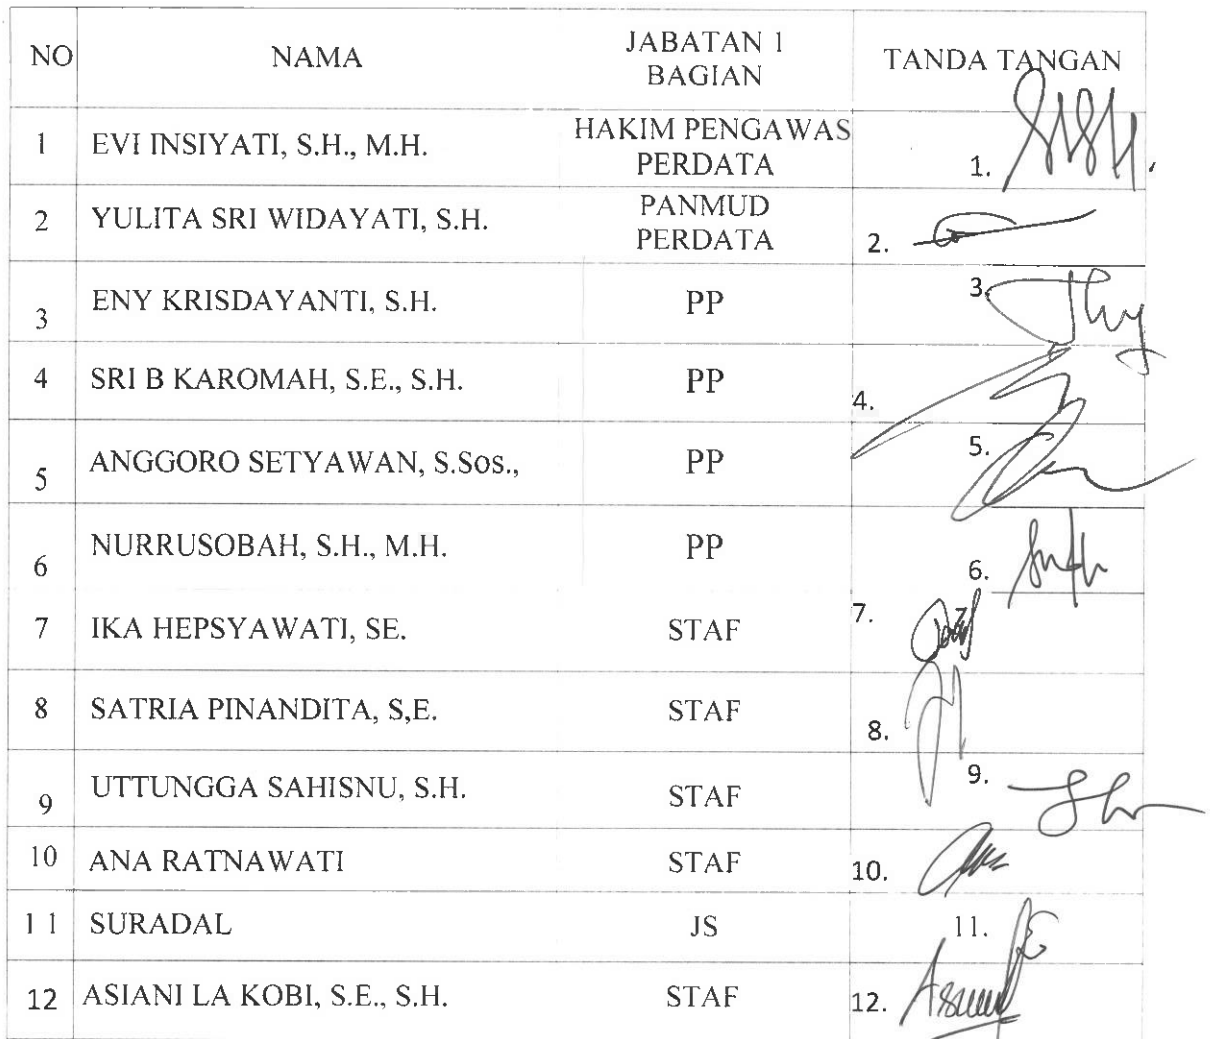 NO NAMA JABATAN 1 BAGIAN TANDA TANGAN
1 EVI INSIYATI, S.H., M.H. HAKIM PENGAWAS PERDATA 1.
2 YULITA SRI WIDAYATI, S.H. PANMUD PERDATA 2.
3 ENY KRISDAYANTI, S.H. PP 3.
4 SRI B KAROMAH, S.E., S.H. PP 4.
5 ANGGORO SETYAWAN, S.Sos., PP 5.
6 NURRUSOBAH, S.H., M.H. PP 6.
7 IKA HEPSYAWATI, SE. STAF 7.
8 SATRIA PINANDITA, S,E. STAF 8.
9 UTTUNGGA SAHISNU, S.H. STAF 9.
10 ANA RATNAWATI STAF 10.
1 1 SURADAL JS 11.
12 ASIANI LA KOBI, S.E., S.H. STAF 12.